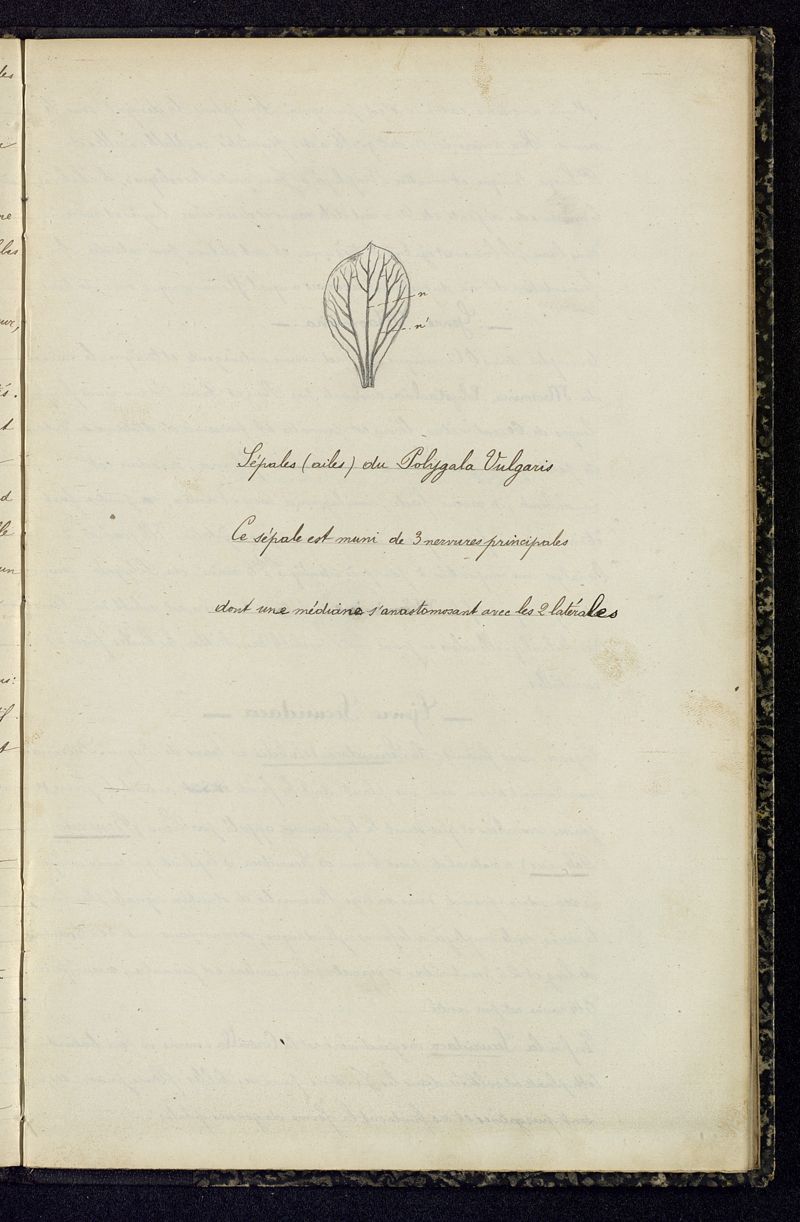 n
n'
Sépales (ailes) du Polygala Vulgaris
Ce sépale est muni de 3 nervures principales
dont une médiane s'anastomosant avec les 2 latérales